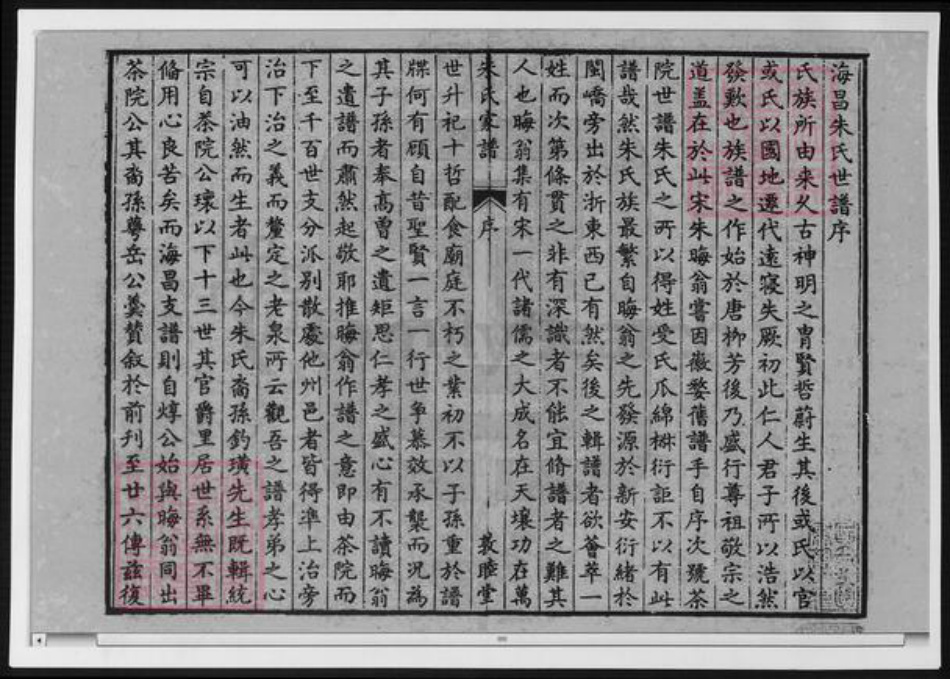 海昌朱氏世譜序
氏族所由来久古神明之胄賢哲蔚生其後或氏以官
或氏以國地遷代遠寖失厥初此仁人君子所以浩然
發歎也族譜之作始於唐柳芳後乃盛行尊祖敬宗之
道盖在於此宋朱晦翁嘗因徽婺舊譜手自序次號茶
院世譜朱氏之所以得姓受氏瓜綿椒衍詎不以有此
譜哉然朱氏族最繁自晦翁之先發源於新安衍緒於
閩嶠旁出於浙東西已有然矣後之輯譜者欲薈萃一
姓而次第條貫之非有深識者不能宜脩譜者之難其
人也晦翁集有宋一代諸儒之大成名在天壤功在萬
朱氏家譜 序 敦睦堂
世升祀十哲配食廟庭不朽之業初不以子孫重於譜
牒何有顧自昔聖賢一言一行世争慕效承襲而况為
其子孫者奉高曾之遺矩思仁孝之盛心有不讀晦翁
之遺譜而肅然起敬耶推晦翁作譜之意即由茶院而
下至千百世支分派别散處他州邑者皆得準上治旁
治下治之義而釐定之老泉所云觀吾之譜孝弟之心
可以油然而生者此也今朱氏裔孫鈞璜先生既輯統
宗自茶院公瓌以下十三世其官爵里居世系無不畢
脩用心良苦矣而海昌支譜則自焞公始與晦翁同出
茶院公其裔孫蕚岳公黌贊叙於前刋至廿六傳兹復